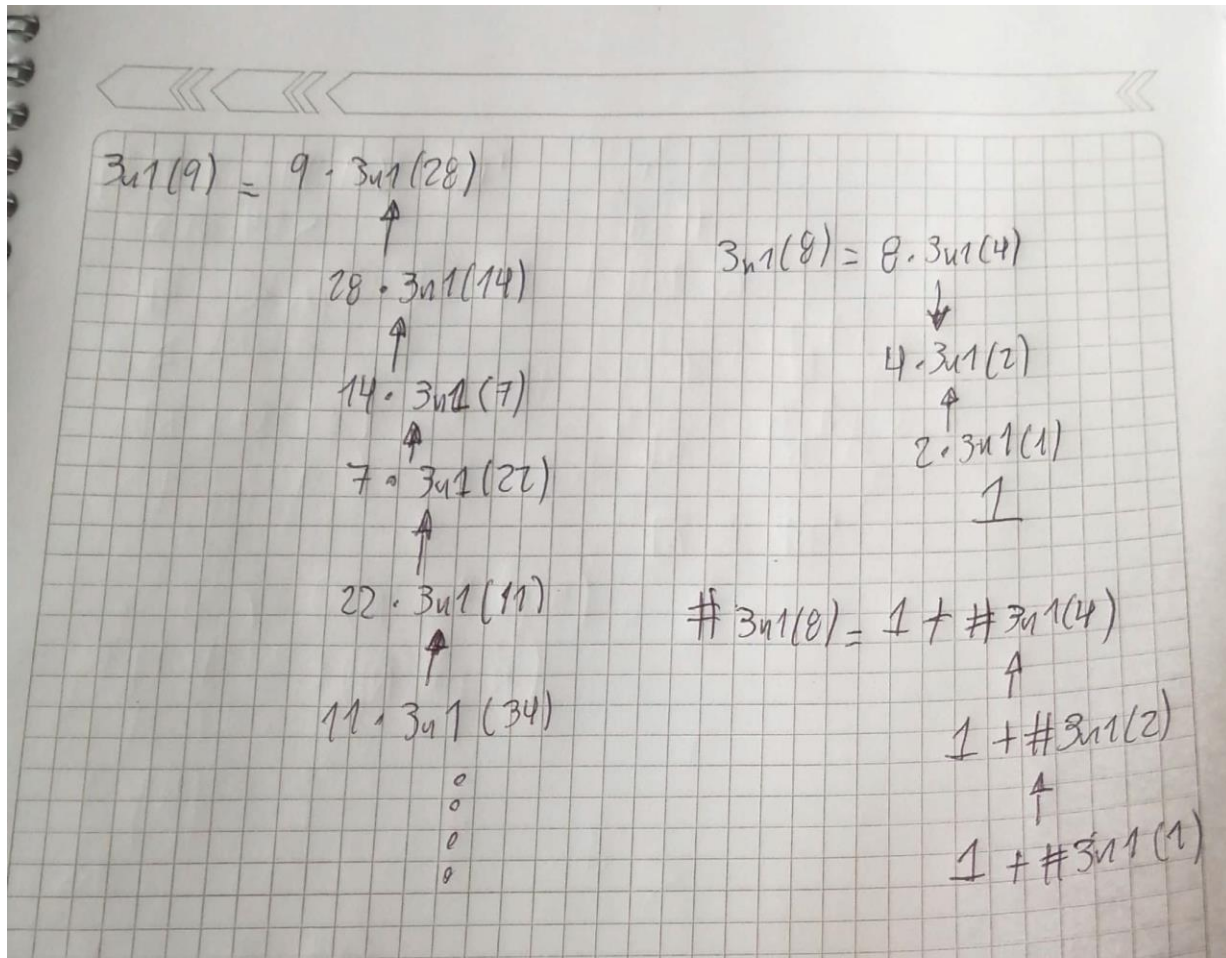 3n1(9) = 9 · 3n1(28)
28 · 3n1(14)
14 · 3n1(7)
7 · 3n1(22)
22 · 3n1(11)
11 · 3n1(34)
3n1(8) = 8 · 3n1(4)
4 · 3n1(2)
2 · 3n1(1)
1
# 3n1(8) = 1 + # 3n1(4)
1 + # 3n1(2)
1 + # 3n1(1)